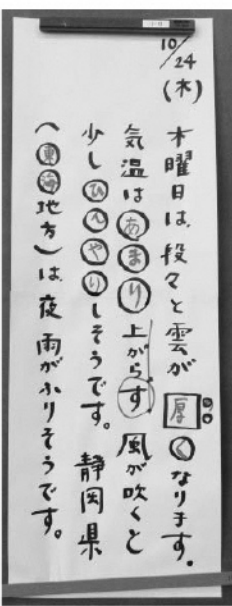 10/24
(木)
木曜日は、段々と雲が厚くなります。
気温はあまり上がらず風が吹くと
少しひんやりしそうです。静岡県
(東海地方)は、夜雨がふりそうです。